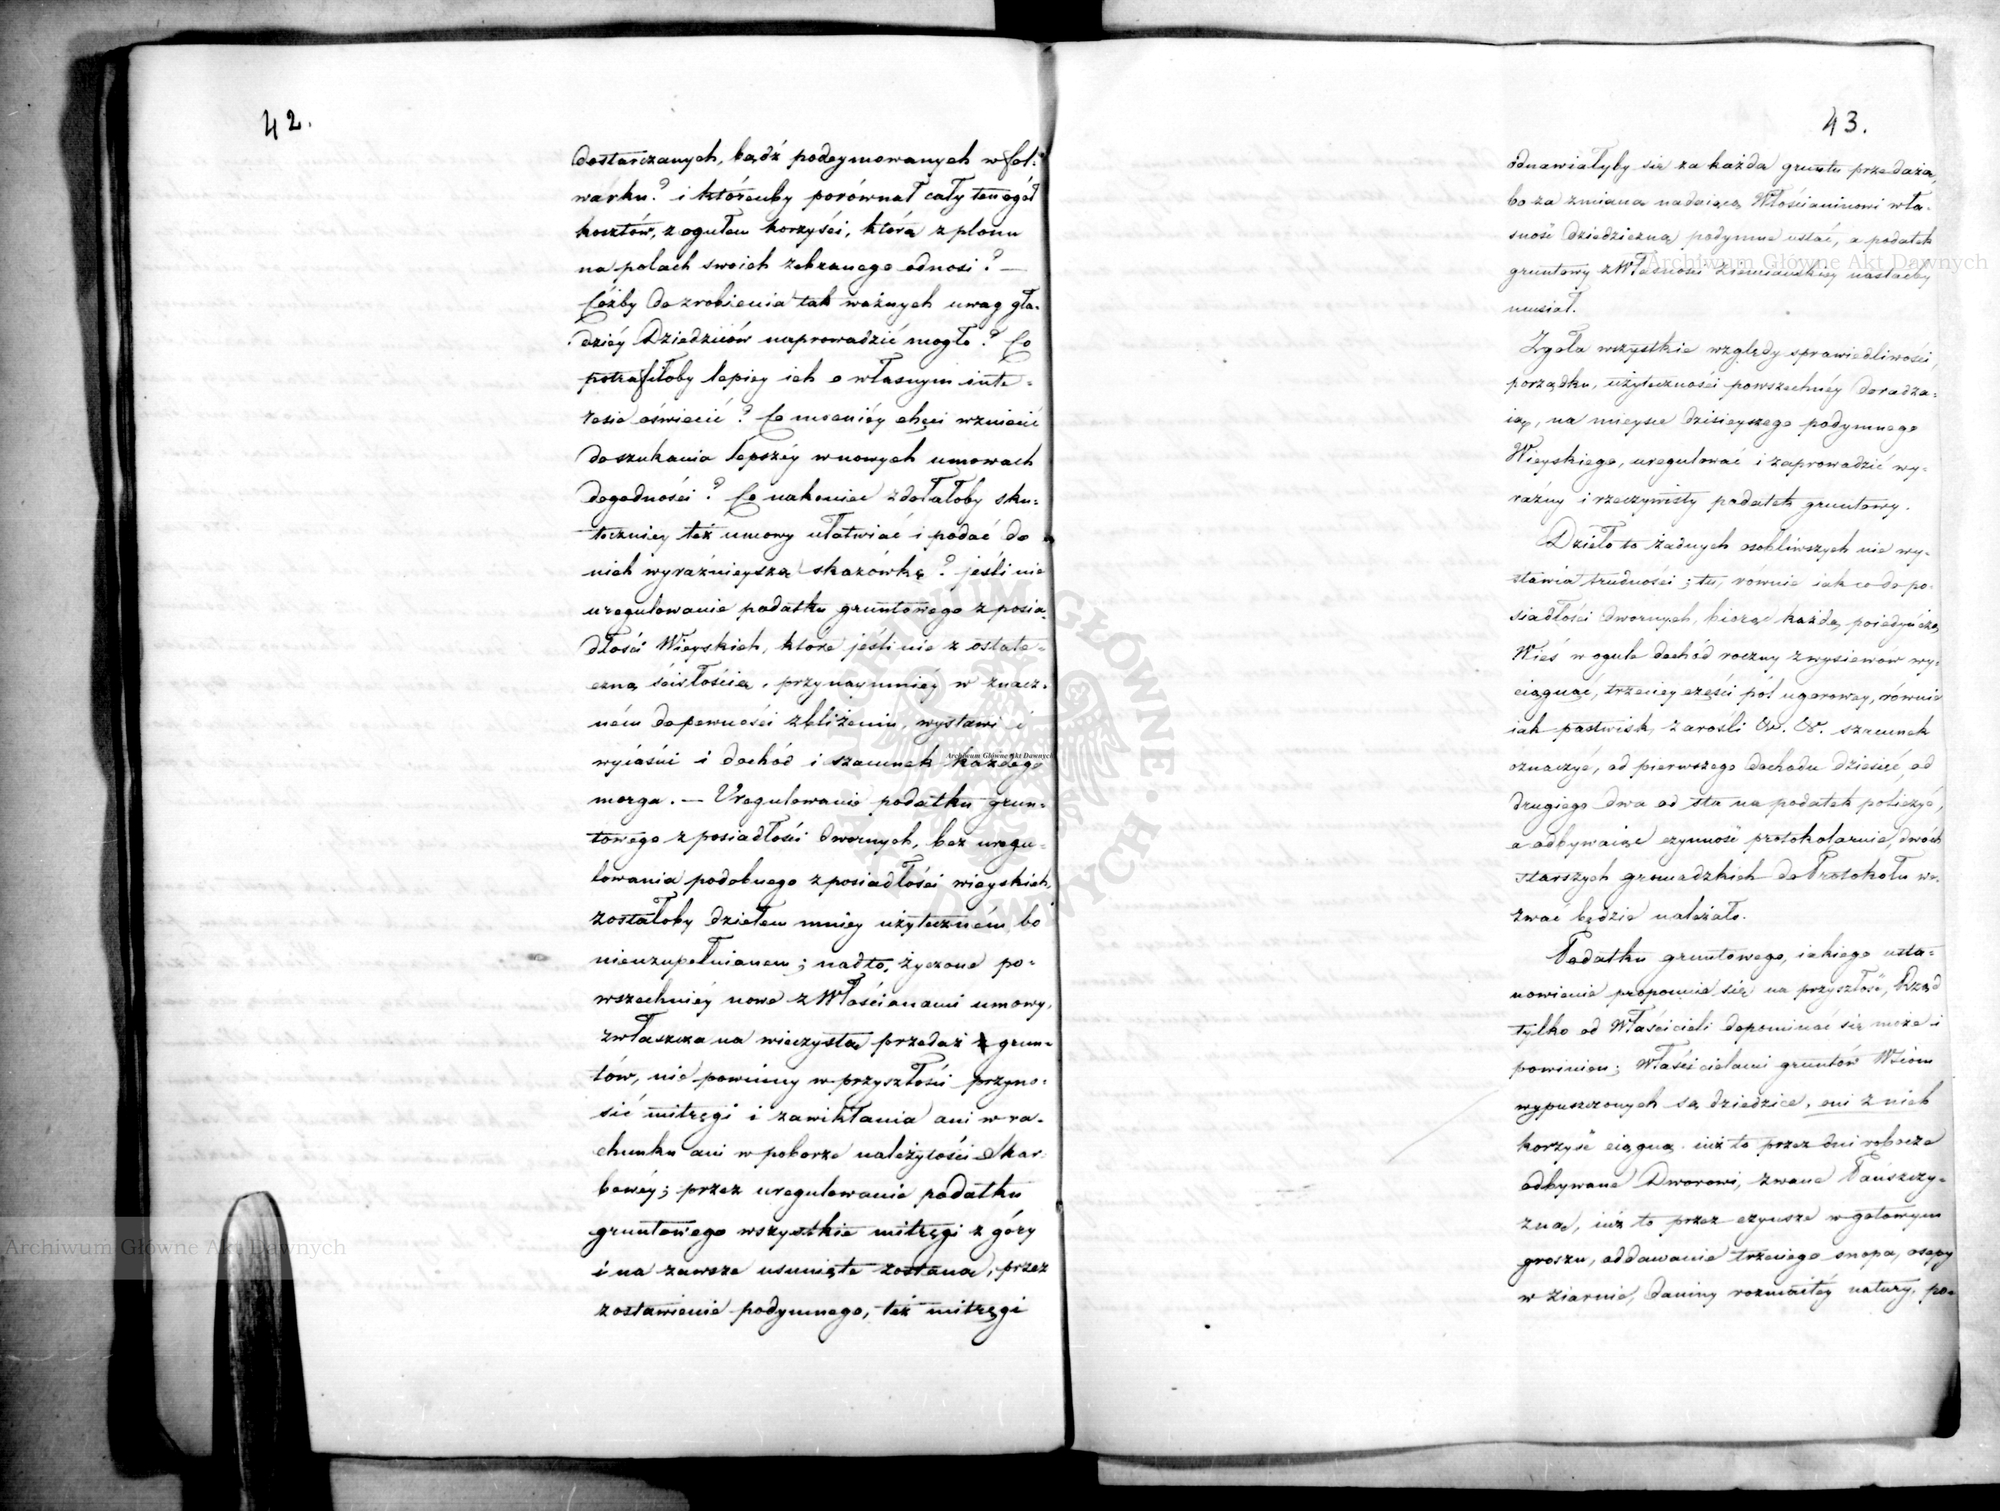 42.
dostarczanych, bądź podeymowanych w fol-
warku? i któżenby porównał cały ten ogół
kosztów, z ogułem korzyści, którą z plonu
na polach swoich zebranego odnosi? —
Cóżby do zrobienia tak ważnych uwag gła-
dziéy Dziedziców naprowadzić mogło? Co
potrafiłoby lepiey ich o własnym inte-
resie oświecić? Co mocniéy chęci wzniecić
do szukania lepszéy w nowych umowach
dogodności? Co nakoniec zdołałoby sku-
teczniey też umowy ułatwiać i podać do
nich wyraźnieyszą skazówkę? jeśli nie
uregulowanie podatku gruntowego z posia-
dłości Wieyskich, które jeśli nie z ostate-
czną ścisłością, przynaymniéy w znacz-
ném do pewności zbliżeniu, wystawi i
wyiaśni i dochód i szacunek każdego
morga. — Uregulowanie podatku grun-
towego z posiadłości dwornych, bez uregu-
lowania podobnego z posiadłości wieyskich,
zostałoby dziełem mniey użyteczném bo
nieuzupełnionem; nadto, życzone po-
wszechniéy nowe z Włościanami umowy,
zwłaszcza na wieczystą przedaż grun-
tów, nie powinny w przyszłości przyno-
sić mitręgi i zawikłania ani w ra-
chunku ani w poborze należytości Skar-
bowéy; przez uregulowanie podatku
gruntowego wszystkie mitręgi z góry
i na zawsze usunięte zostaną, przez
zostawienie podymnego, też mitręgi
43.
odnawiałyby się za każdą gruntu przedażą,
bo za zmianą nadaiącą Włościaninowi wła-
sność dziedziczną podymne ustać, a podatek
gruntowy z Własności Ziemiańskiey nastaćby
musiał.
Zgoła wszystkie względy sprawiedliwości,
porządku, użyteczności powszechnéy doradza-
ią, na mieysce dzisieyszego podymnego
Wieyskiego, uregulować i zaprowadzić wy-
raźny i rzeczywisty podatek gruntowy.
Dzieło to żadnych osobliwszych nie wy-
stawia trudności; tu, rownie iak co do po-
siadłości dwornych, biorąc każdą poiedyńczą
Wieś w ogule dochód roczny z wysiewów wy-
ciągnąć, trzeciey części pól ugorowey, równie
iak pastwisk, zarośli &. &. szacunek
oznaczyć, od pierwszego dochodu dziesięć, od
drugiego dwa od sta na podatek policzyć,
a odbywaiąc czynność protokolarnie, dwóch
starszych gromadzkich do Protokołu we-
zwać będzie należało.
Podatku gruntowego, iakiego usta-
nowienie proponuie się na przyszłość, Rząd
tylko od Właścicieli dopominać się może i
powinien; Właścicielami gruntów Wsiom
wypuszczonych są dziedzice, oni z nich
korzyść ciągną iuż to przez dni robocze
odbywane Dworowi, zwane Pańszczy-
zną, iuż to przez czynsze w gotowym
groszu, oddawanie trzeciego snopa, osepy
w ziarnie, daniny rozmaitéy natury, po-
Archiwum Główne Akt Dawnych
Archiwum Główne Akt Dawnych
Archiwum Główne Akt Dawnych
ARCHIWUM GŁÓWNE AKT DAWNYCH